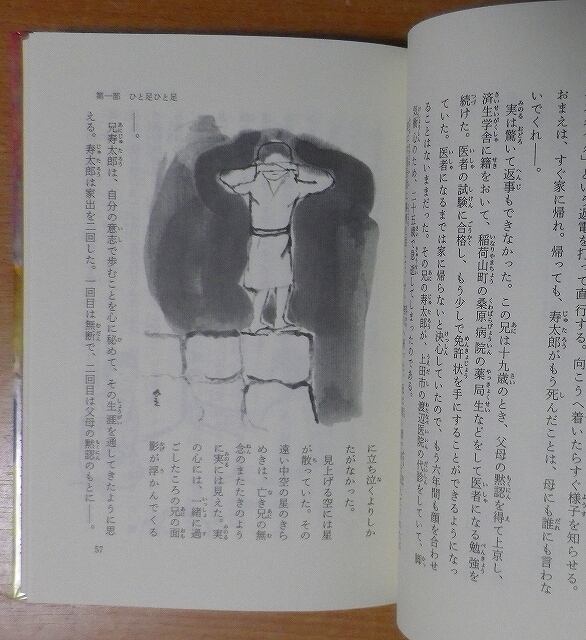 と返電を打って直行する。向こうへ着いたらすぐ様子を知らせる。
おまえは、すぐ家に帰れ。帰っても、寿太郎がもう死んだことは、母にも誰にも言わな
いでくれ――。
実は驚いて返事もできなかった。この兄は十九歳のとき、父母の黙認を得て上京し、
済生学舎に籍をおいて、稲荷山町の桑原病院の薬局生などをして医者になる勉強を
続けた。医者の試験に合格し、もう少しで免許状を手にすることができるようになっ
ていた。医者になるまでは家に帰らないと決心していたので、もう六年間も顔を合わせ
ることはないままだった。その兄の寿太郎が、上田市の渡辺医院の代診をしていて、脚
気衝心のため、二十五歳で急逝してしまったのである。
第一部 ひと足ひと足
に立ち泣くよりしか
たがなかった。
見上げる空には星
が散っていた。その
遠い中空の星のきら
めきは、亡き兄の無
念のまたたきのよう
に実には見えた。実
の心には、一緒に過
ごしたころの兄の面
影が浮かんでくる
――。
兄寿太郎は、自分の意志で歩むことを心に秘めて、その生涯を通してきたように思
える。寿太郎は家出を二回した。一回目は無断で、二回目は父母の黙認のもとに――。
57